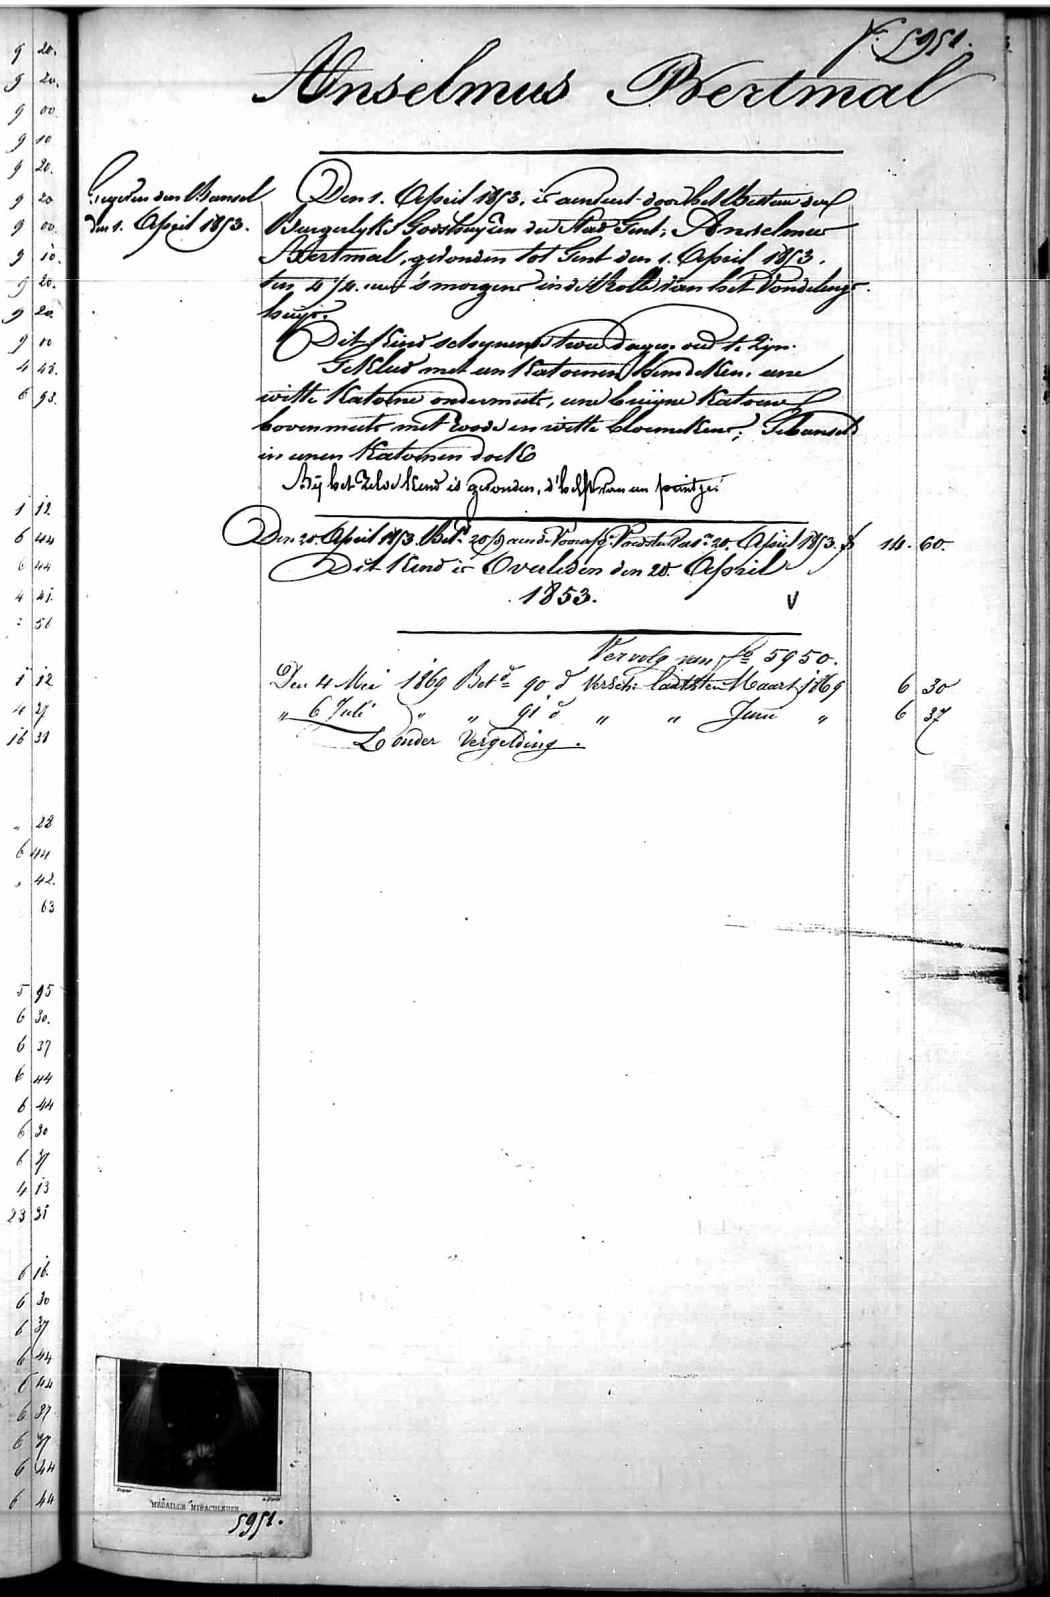 f.º 5951.
Anselmus Bertmal
Gegeven den Bansel
den 1. April 1853.
Den 1. April 1853. is aenveert door het Bestuer der
Burgerlyke Godshuyzen der Stad Gent; Anselmus
Bertmal, gevonden tot Gent den 1. April 1853.
ten 4 1/4. uer 's morgens in de Rolle van het Vondelings
huys.
Dit Kind schynende twee dagen oud te Zyn.
Gekleed met een Katoenen hemdeken, eene
witte Katoene ondermuts, eene bruyne Katoene
bovenmuts met roode en witte bloemekens; Gebanseld
in eenen Katoenen doek
By het Zelve Kind is gevonden, d'helft van een prentje.
Den 20. April 1853. Bet.d 20 d aen de Voorsz: Voedster Pas.n 20. April 1853. f 14. 60.
Dit Kind is Overleden den 20. April
1853. V
Vervolg van f.º 5950.
Den 4 Mei 1869 Bet.d 90 d versch: laatsten Maart 1869 6 30
„ 6 Juli „ „ 91 d „ „ Juni „ 6 37
Zonder Vergelding.
9 20.
9 20.
9 00.
9 10
9 20.
9 20
9 00.
9 10.
9 20.
9 20
9 10
4 48.
6 93.
1 12
6 44
6 44
4 41.
: 51
1 12
4 27
16 38
„ 28
6 44
„ 42.
63
5 95
6 30.
6 37
6 44
6 44
6 30
6 37
4 13
23 31
6 16.
6 30
6 37
6 44
6 44
6 37
6 37
6 44
6 44
MÉDAILLE MIRACULEUSE
5951.